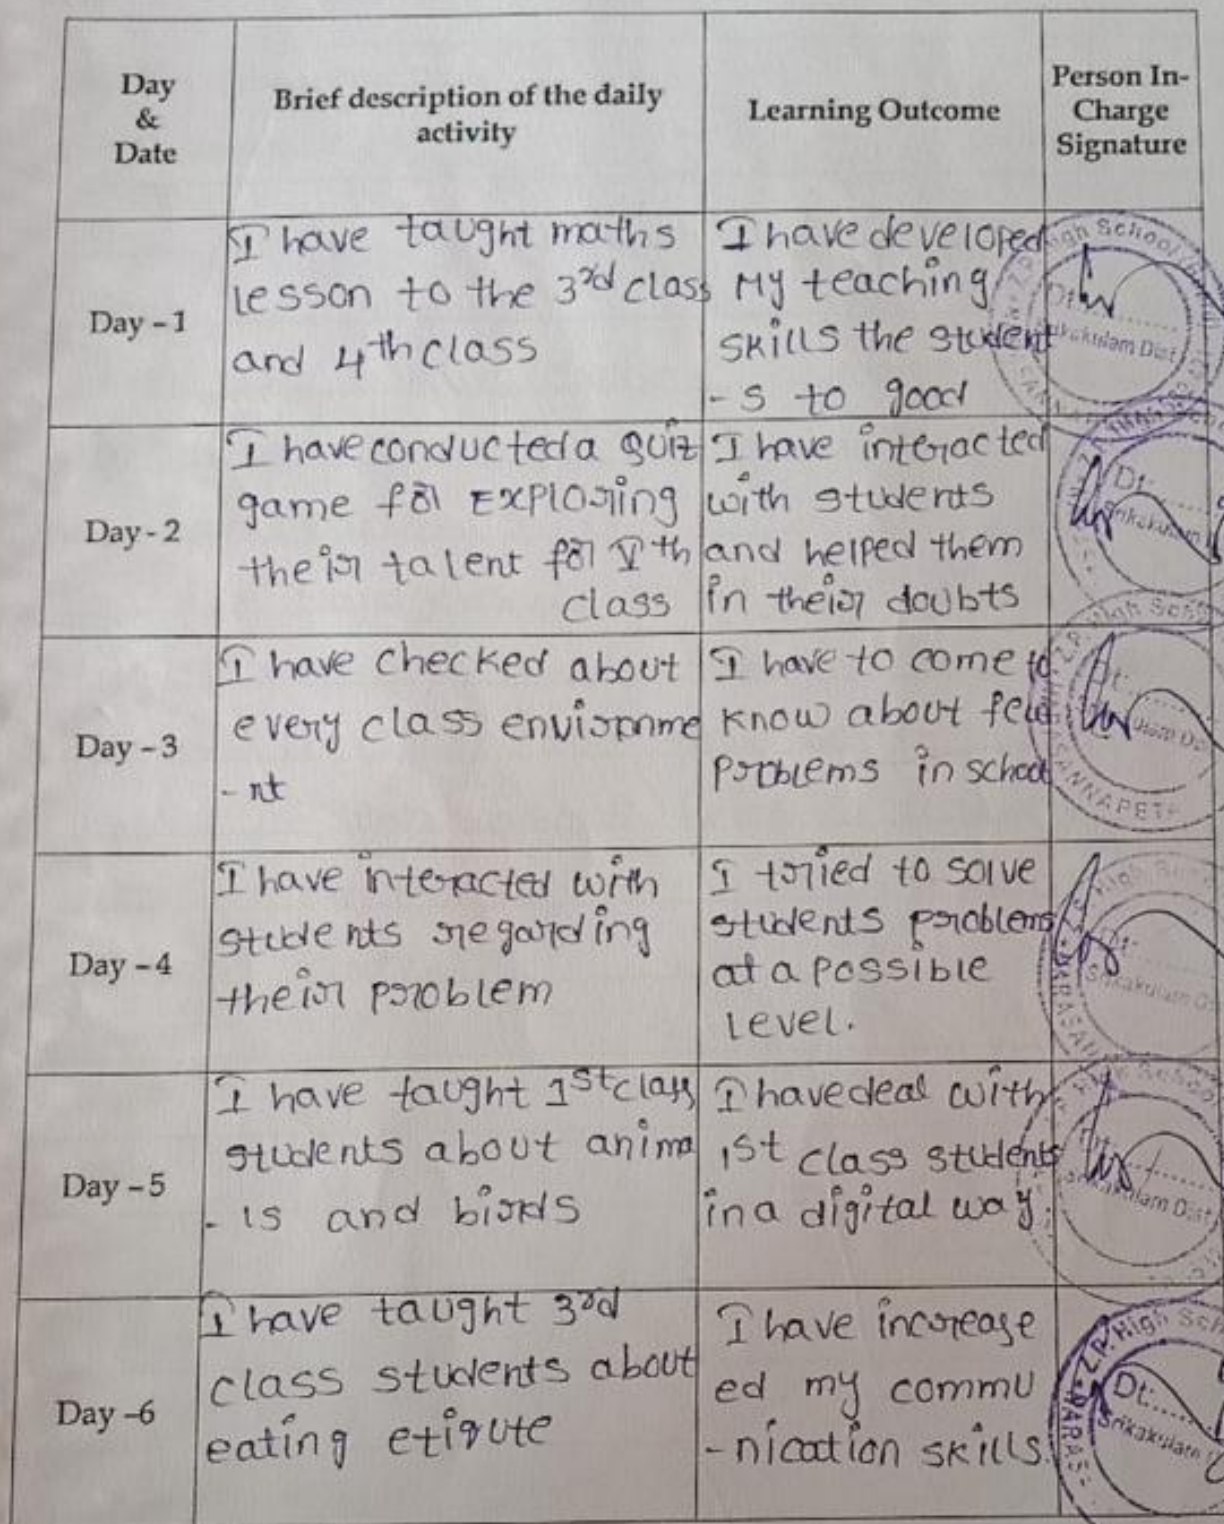 Day
&
Date
Brief description of the daily
activity
Learning Outcome
Person In-
Charge
Signature
Day - 1
I have taught maths
lesson to the 3rd class
and 4th class
I have developed
My teaching
skills the student
- s to good
Z.P. High School
Dt:
Srikakulam Dist
Day - 2
I have conducted a quiz
game for Exploring
their talent for Vth
class
I have interacted
with students
and helped them
in their doubts
Dt:
Srikakulam
Day - 3
I have checked about
every class environme
- nt
I have to come to
know about few
problems in school
Z.P. High School
Dt:
SANNAPETA
Day - 4
I have interacted with
students regarding
their problem
I tried to solve
students problems
at a possible
level.
High
Dt:
Srikakulam
Day - 5
I have taught 1st class
students about anima
- ls and birds
I have deal with
1st class students
in a digital way.
High School
Dt:
Srikakulam Dist
Day -6
I have taught 3rd
class students about
eating etiqute
I have increase
ed my commu
- nication skills.
Z.P. High Sch
Dt:
Srikakulam
NARAS